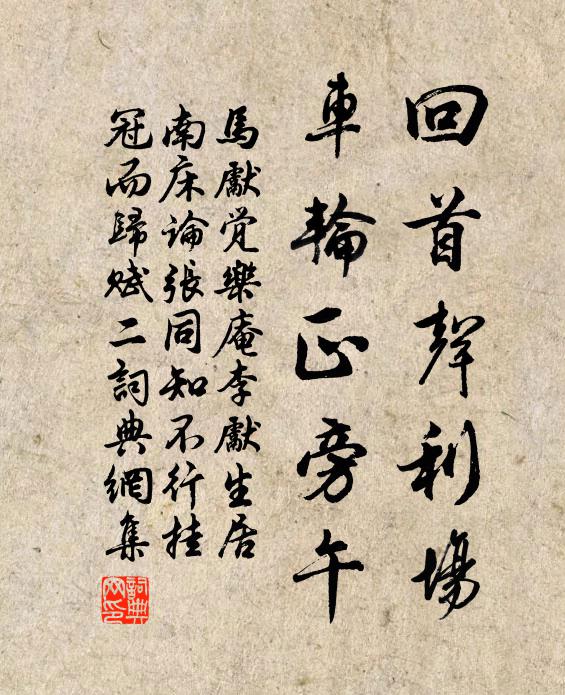 回首聲利場
車輪正旁午
馬獻覚樂庵李獻生居
南床論張同知不行挂
冠而歸賦二詞典網集
詞典網印